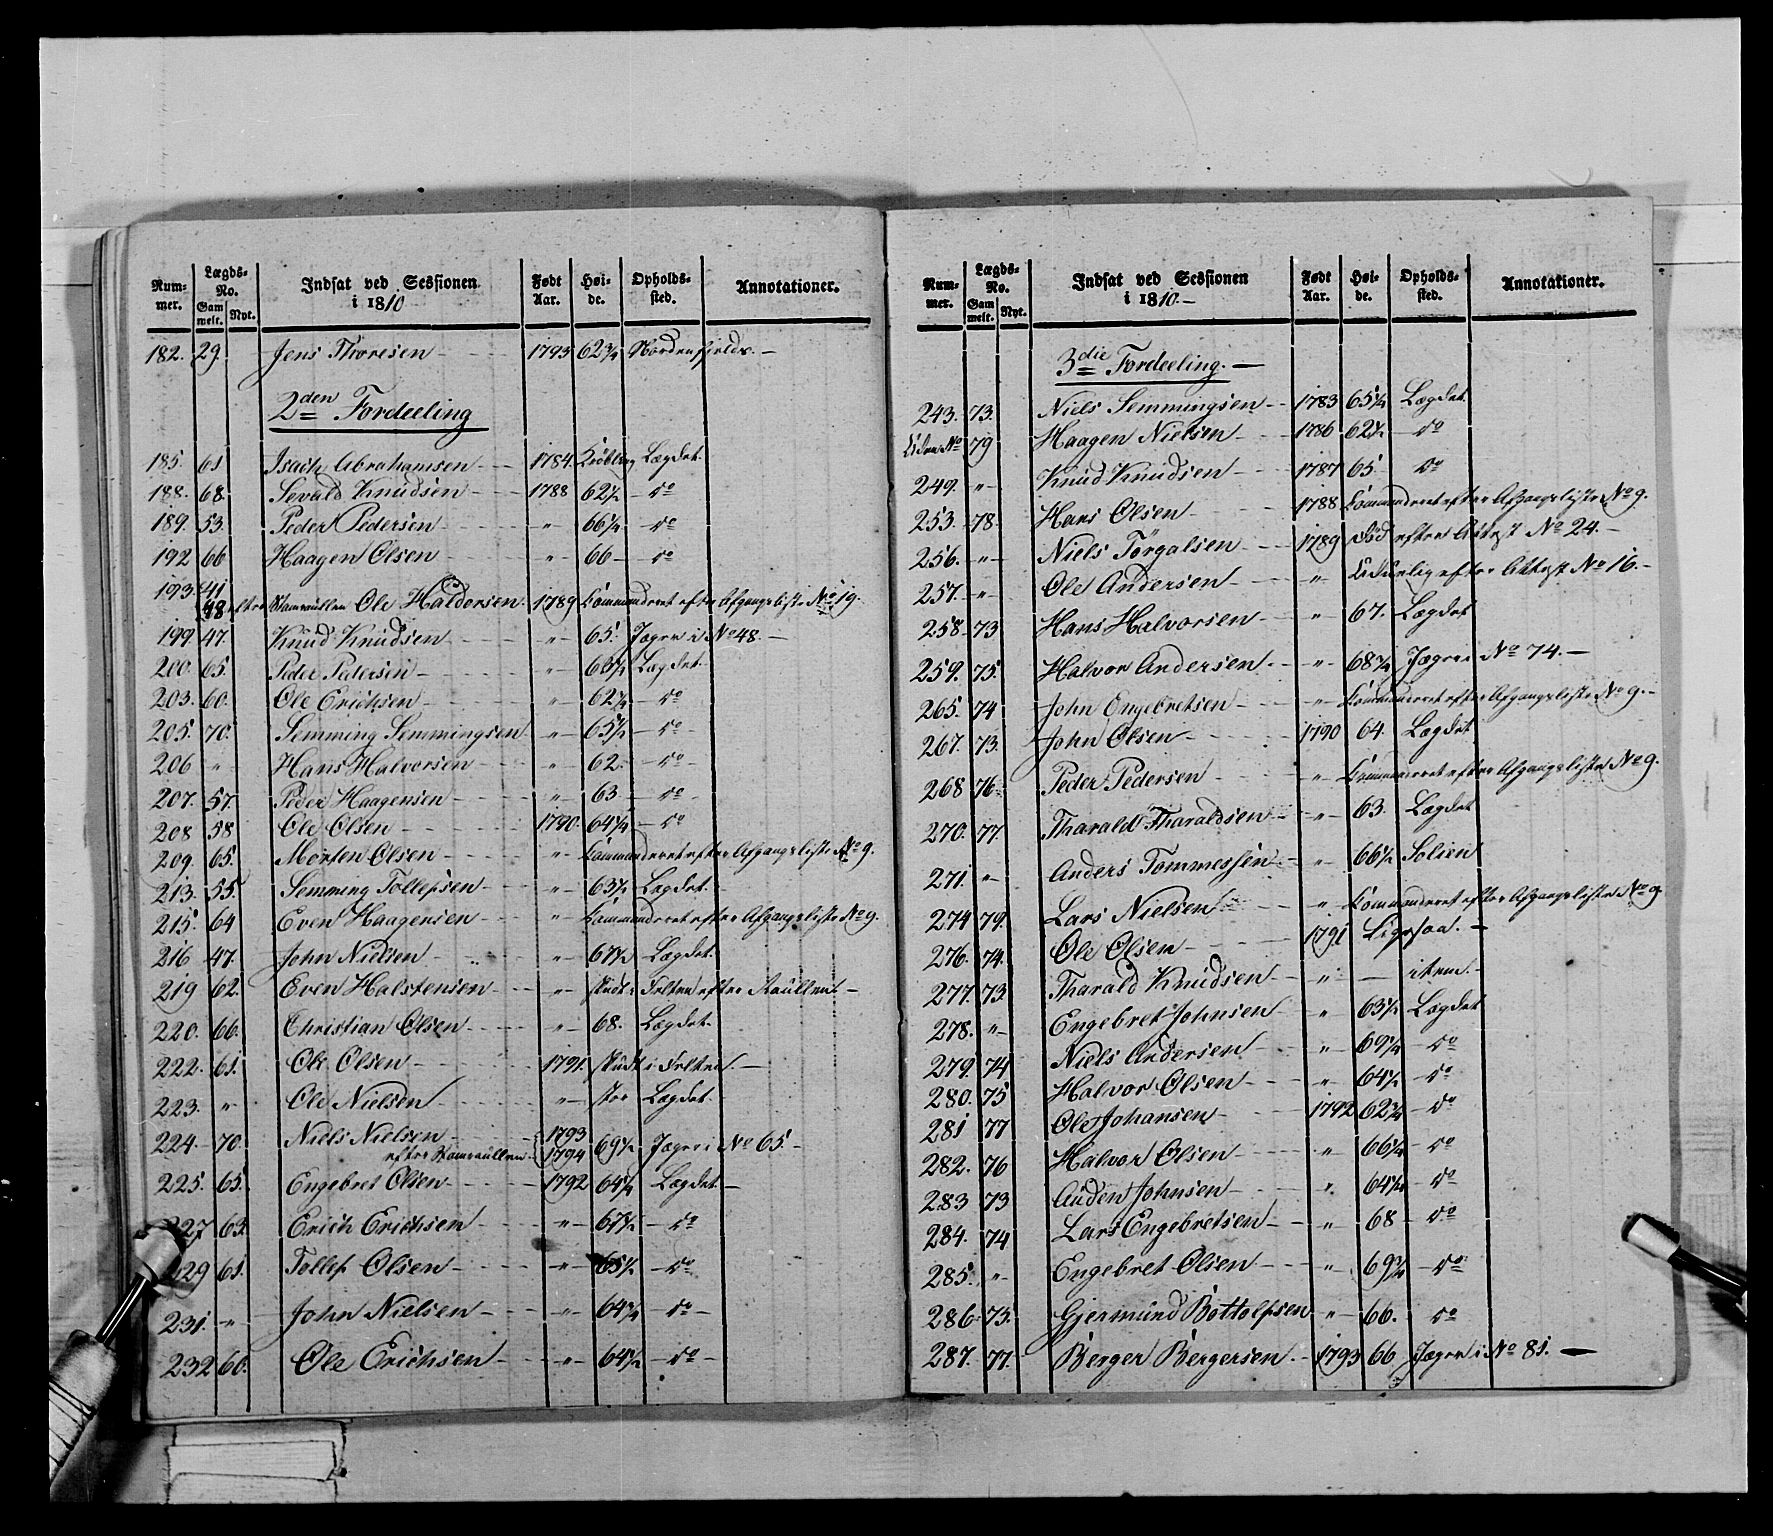 Num-mer. Lægds-No. Gammelt. Nyt. Indsat ved Sessionen i 1810 Født Aar. Høi-de. Opholds-sted. Annotationer.
182. 29. Jens Thoresen 1793 62 3/4 Nordenfjelds.
2den Fordeeling
185. 61 Isach Abrahamsen 1784. Krøbling Lægdet.
188. 68. Sevald Knudsen 1788 62 1/2 do
189. 53. Peder Pedersen " 66 1/4 do
192 66 Haagen Olsen " 66 do
193. 41
48 efter Stamrullen Ole Haldorsen 1789 Commanderet efter Afgangsliste No 19.
199 47. Knud Knudsen " 65. Jægere i No 48.
200. 65. Peder Pedersen " 63 1/2 Lægdet.
203. 60. Ole Erichsen " 62 1/4 do
205. 70. Semming Semmingsen " 65 1/2 do
206 " Hans Halvorsen " 62. do
207. 57. Peder Haagensen " 63 do
208 58 Ole Olsen 1790. 64 1/4 do
209. 65. Morten Olsen " Commanderet efter Afgangsliste No 9.
213. 55. Semming Tollefsen " 63 1/2 Lægdet.
215. 64 Even Haagensen " Commanderet efter Afgangsliste No 9.
216 47. John Nielsen " 67 1/2 Lægdet.
219 62. Even Halstensen " skudt i Felten efter Rullen
220. 66. Christian Olsen " 68. Lægdet.
222. 61. Ole Olsen 1791. skudt i Felten.
223. " Ole Nielsen " stor Lægdet.
224. 70. Niels Nielsen 1793
efter Stamrullen 1794 69 1/2 Jægere i No 65
225. 65. Engebret Olsen 1792 64 1/4 Lægdet
227 63. Erich Erichsen " 67 1/2 do
229 61. Tollef Olsen " 65 1/2 do
231. " John Nielsen " 64 3/4 do
232 60. Ole Erichsen " 64 1/2 do
Num-mer. Lægds-No. Gammelt. Nyt. Indsat ved Sessionen i 1810 Født Aar. Høi-de. Opholds-sted. Annotationer.
3die Fordeeling.
243. 73. Niels Semmingsen 1783 65 1/4 Lægdet.
Uden No 79 Haagen Nielsen 1786 62 1/2 do
249. " Knud Knudsen 1787 65. do
253. 78. Hans Olsen 1788 Commanderet efter Afgangsliste No 9.
256. " Niels Törgalsen 1789 Död efter Attest No 24.
257. " Ole Andersen " Udurlig efter Attest No 16.
258. 73 Hans Halvorsen " 67. Lægdet
259. 75. Halvor Andersen " 68 3/4 Jægere i No 74.
265. 74 John Engebretsen " Commanderet efter Afgangsliste No 9.
267. 73. John Olsen 1790 64. Lægdet
268 76. Peder Pedersen " Commanderet efter Afgangsliste No 9.
270. 77. Tharald Tharaldsen " 63. Lægdet
271. " Anders Tommessen " 66 1/2 Solien
274 79. Lars Nielsen " Commanderet efter Afgangsliste No 9
276. 74. Ole Olsen 1791 Ligesaa.
277. 73. Tharald Knudsen " item.
278. " Engebret Johnsen " 63 1/2 Lægdet
279. 74 Niels Andersen " 69 1/4 do
280. 75 Halvor Olsen " 64 1/2 do
281 77 Ole Johansen 1792 62 3/4 do
282. 76 Halvor Olsen " 66 1/4 do
283 73 Auden Johnsen " 64 1/4 do
284. 74 Lars Engebretsen " 68 do
285. " Engebret Olsen " 69 3/4 do
286. 73. Gjermund Bottolfsen " 66. do
287. 77. Berger Bergersen 1793 66 Jægere i No 81.